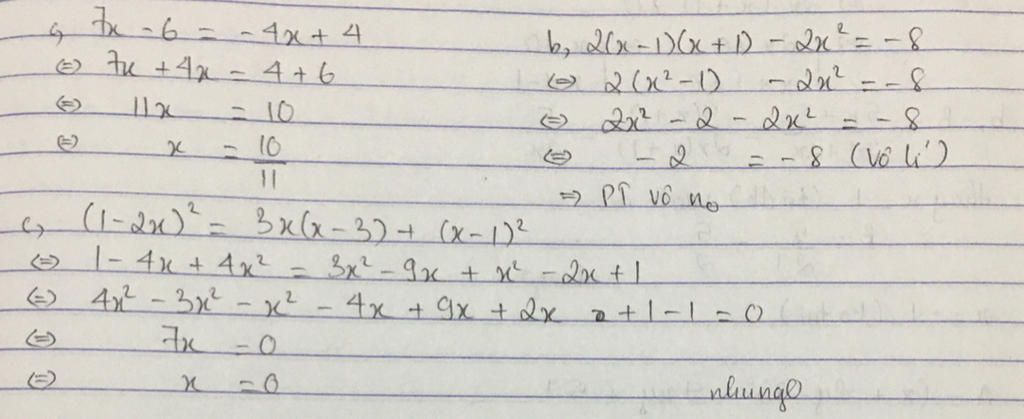 c, 7x - 6 = -4x + 4
⇔ 7x + 4x = 4 + 6
⇔ 11x = 10
⇔ x = 10/11
b, 2(x-1)(x+1) - 2x² = -8
⇔ 2(x²-1) - 2x² = -8
⇔ 2x² - 2 - 2x² = -8
⇔ -2 = -8 (Vô lí)
⇒ PT vô no
c, (1-2x)² = 3x(x-3) + (x-1)²
⇔ 1 - 4x + 4x² = 3x² - 9x + x² - 2x + 1
⇔ 4x² - 3x² - x² - 4x + 9x + 2x + 1 - 1 = 0
⇔ 7x = 0
⇔ x = 0